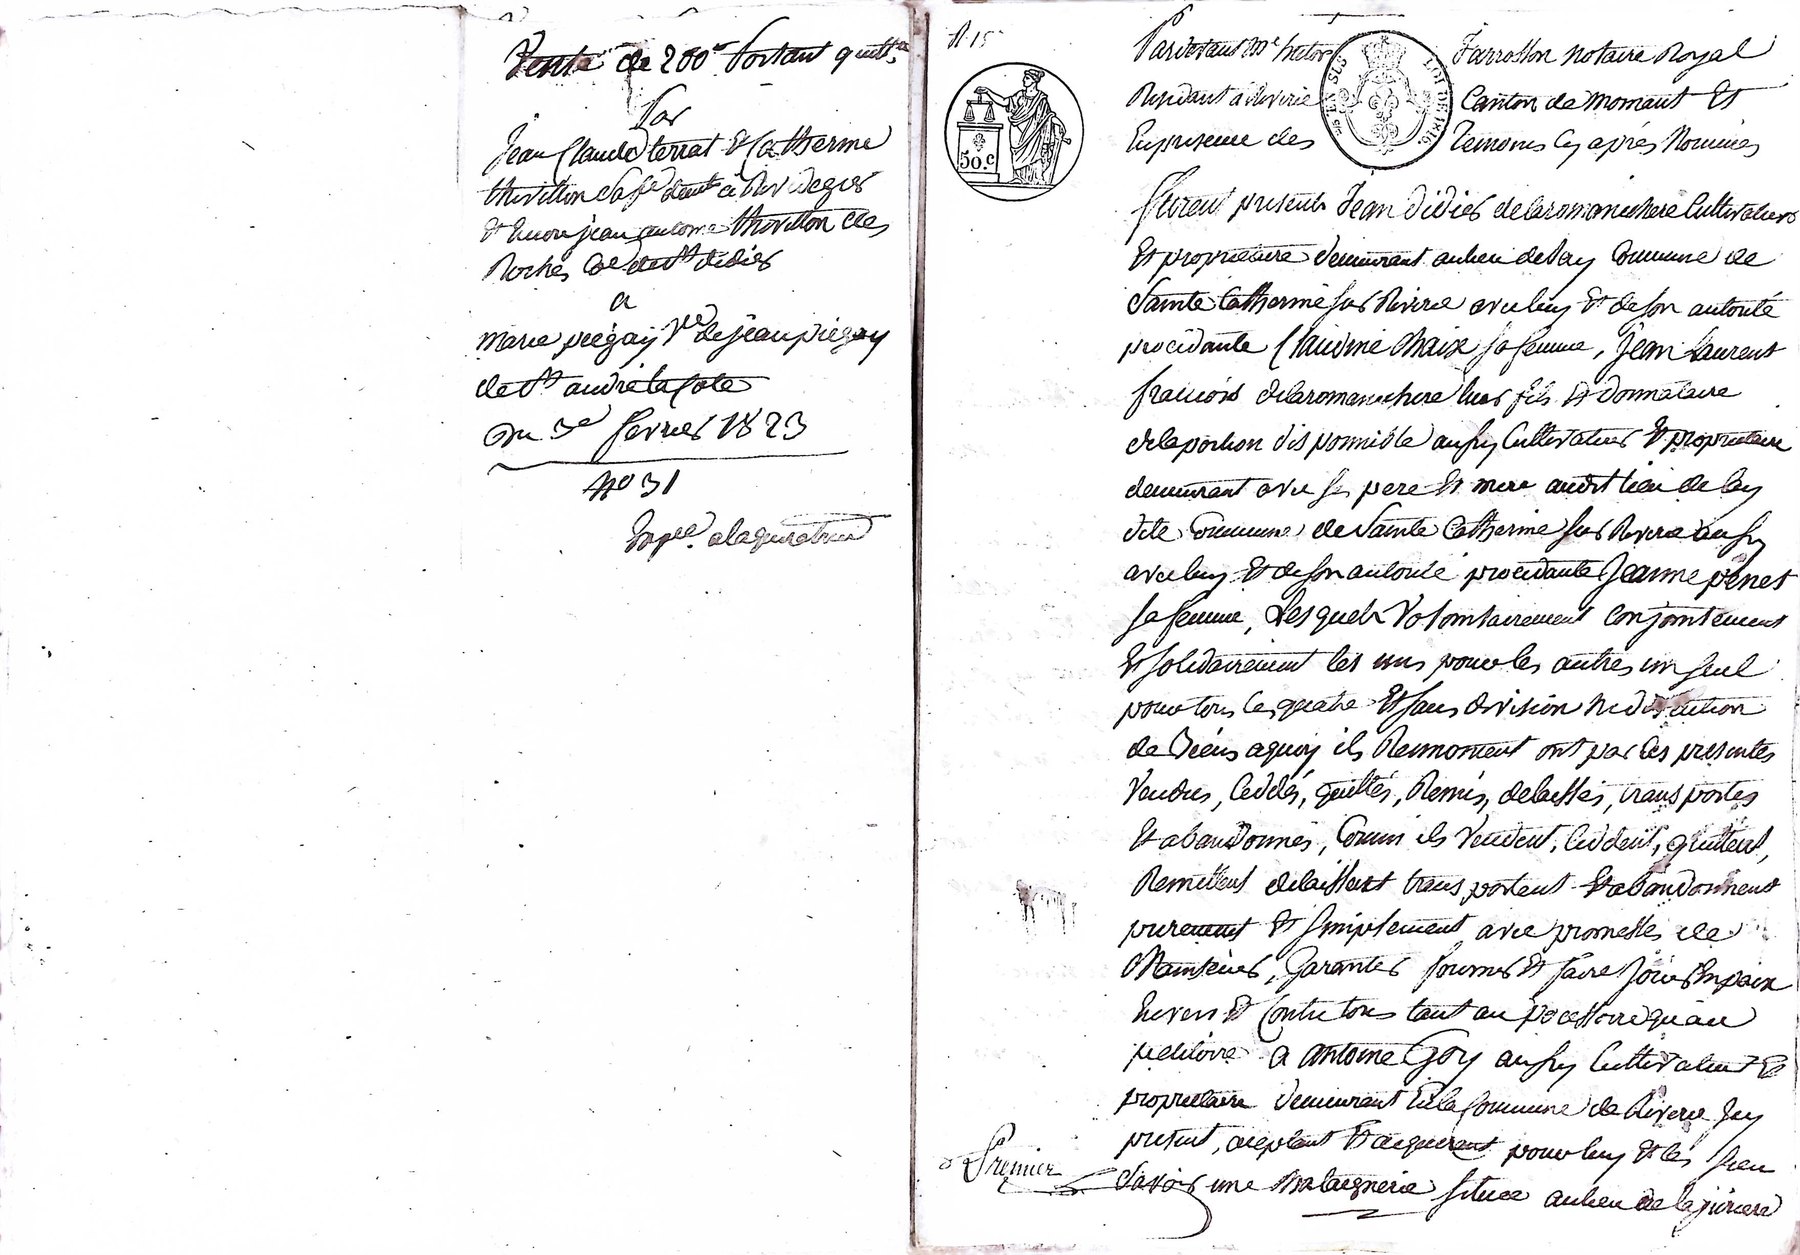 Vente de 200 fr portant quitt.ce
Par
Jean Claude terrat Et Catherine
thivillon sa fe dem.t à Rivedegier
Et Encore jean antoine thivillon des
Roches C.ne de St didier
a
marie piégay V.ve de jean piégay
de St andré la Cote
Du 3e fevrier 1823
No 31
Exp.ée a laquereur
R. 15
50.c
LOI DE 1816
Pardevant Me hector Farrosson Notaire Royal
Residant a Riverie Canton de Mornant Et
En presence des Temoins Cy après Nommés
furent présents Jean Didier delaromanchere Cultivateur
Et proprietaire demeurant au lieu de Lay Commune de
Sainte Catherine sur Riverie avec luy Et de son autorité
procédante Claudine Chaix sa femme, Jean Laurent
françois delaromanchere leur fils Et Donnataire
de la portion disponnible aussy Cultivateur Et proprietaire
demeurant avec ses pere Et mere audit lieu de Lay
dite Commune de Sainte Catherine sur Riverie aussy
avec luy Et de son autorité procédante Jeanne penet
sa femme, Lesquels Volontairement Conjointement
Et solidairement les uns pour les autres un seul
pour tous les quatre Et sans division ni discution
de Biens a quoy ils Renoncent ont par Ces presentes
Vendus, Ceddés, quittés, Remis, delaissés, transportés
Et abandonnés, Comm ils Vendent, Ceddent, quittent,
Remettent delaissent transportent Et abandonnent
purement Et simplement avec promesses de
Maintenir, Garantir fournir Et faire Jouir En paix
Envers Et Contre tous tant au pocessoire qu'au
petitoire a antoine Goy aussy Cultivateur Et
proprietaire demeurant En la Commune de Riverie Icy
present, acceptant Et acquerant pour luy Et les sien
Savoir une Chataignerie située au lieu de la
Premier